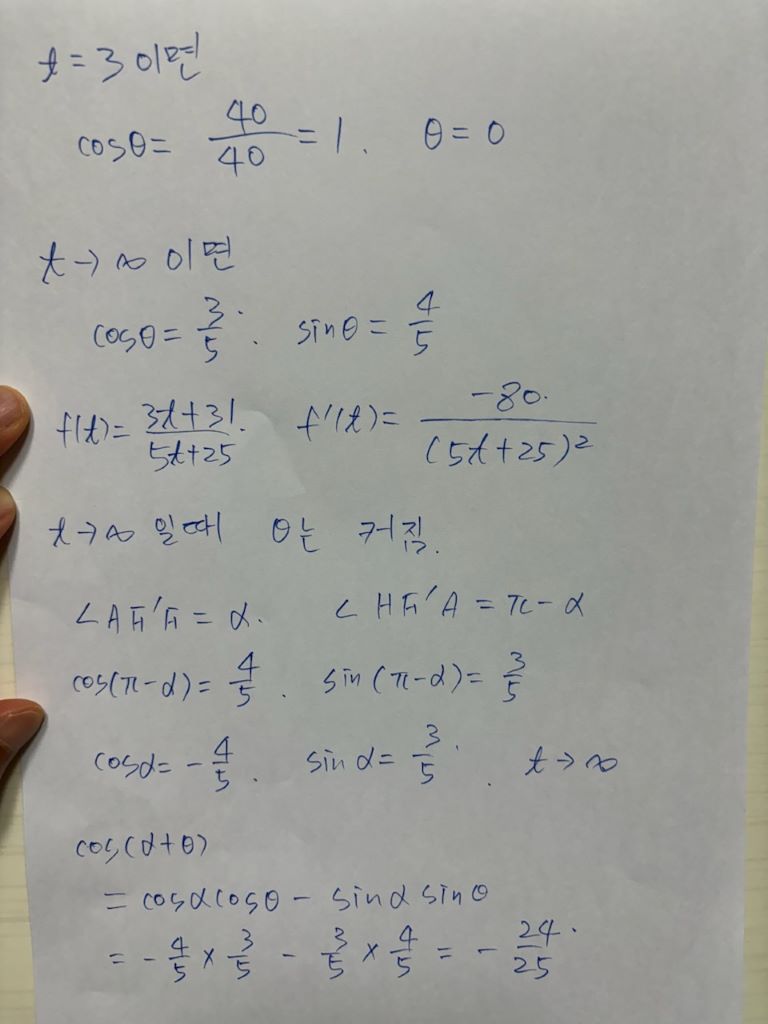 t = 3 이면
cosθ = 40/40 = 1. θ = 0
t → ∞ 이면
cosθ = 3/5. sinθ = 4/5
f(t) = (3t+31)/(5t+25) f'(t) = -80/(5t+25)²
t → ∞ 일때 θ는 커짐.
∠AF'F = α. ∠HF'A = π - α
cos(π-α) = 4/5. sin(π-α) = 3/5
cosα = -4/5. sinα = 3/5. t → ∞
cos(α+θ)
= cosαcosθ - sinα sinθ
= -4/5 × 3/5 - 3/5 × 4/5 = -24/25.